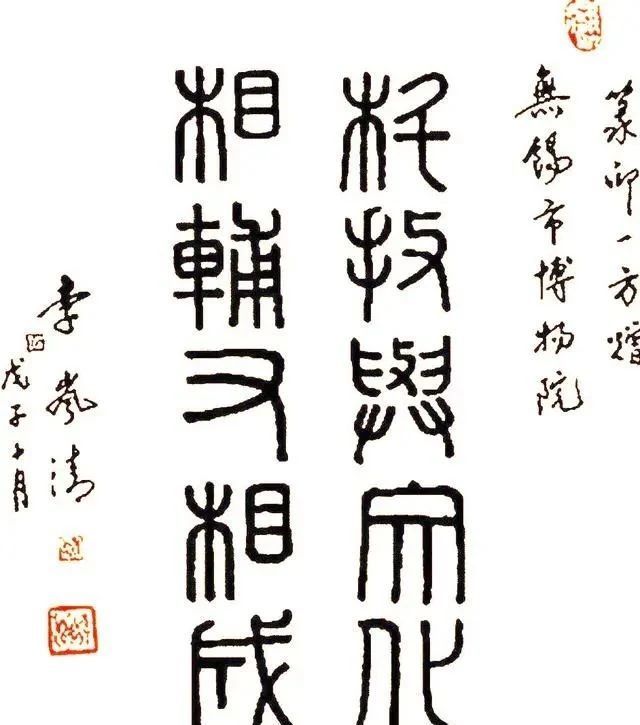 篆印一方赠
無錫市博物院
科技與文化
相輔又相成
李嵐清
戊子十月